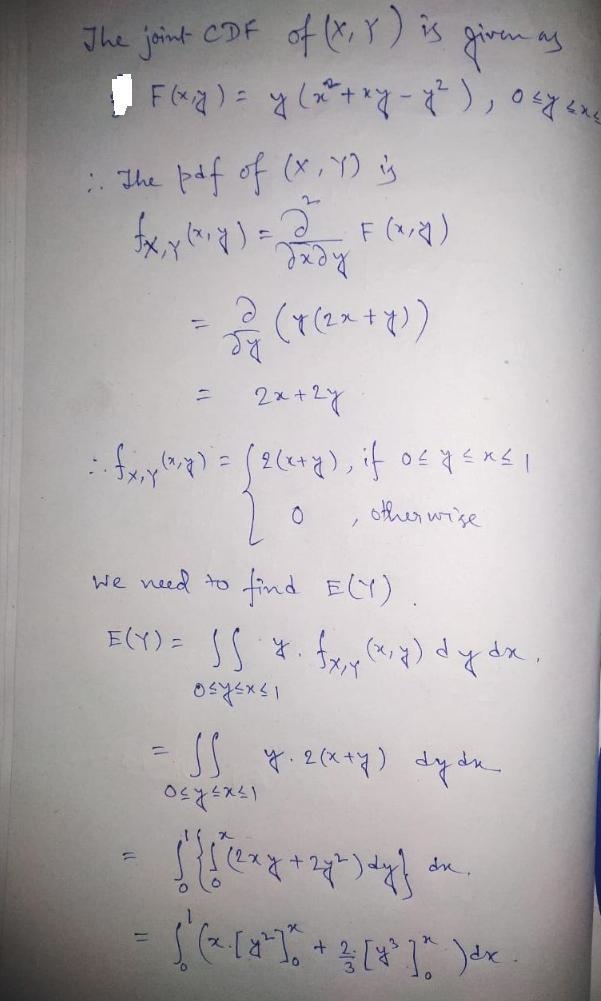 The joint CDF of (X, Y) is given as
F(x,y) = y (x² + xy - y²), 0≤y≤x≤
∴ The pdf of (X, Y) is
f_{X,Y}(x,y) = ∂²/∂x∂y F(x,y)
= ∂/∂y (y(2x+y))
= 2x+2y
∴ f_{X,Y}(x,y) = { 2(x+y), if 0≤y≤x≤1
0 , otherwise
We need to find E(Y).
E(Y) = ∫∫ y. f_{X,Y}(x,y) dy dx,
0≤y≤x≤1
= ∫∫ y. 2(x+y) dy dx
0≤y≤x≤1
= ∫₀¹{∫₀ˣ(2xy + 2y²) dy} dx.
= ∫₀¹(x.[y²]₀ˣ + 2/3 [y³]₀ˣ)dx.